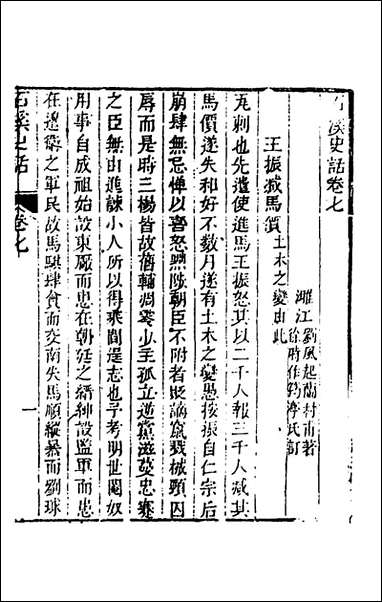 石溪史話卷七
濉江劉鳳起蘭村甫著
徐時作筠亭氏訂
王振减馬價土木之變由此
瓦剌也先遣使進馬王振怒其以二千人報三千人减其
馬價遂失和好不數月遂有土木之變愚按振自仁宗后
崩肆無忌憚以喜怒黜陟朝臣不附者貶謫竄戮械頸囚
辱而是時三楊皆故舊輔凋零少主孤立逆黨滋蔓忠蹇
之臣無由進諫小人所以得乘間逞志也予考明世閹奴
用事自成祖始設東廠而患在朝廷之縉紳設監軍而患
在邊徼之軍民故馬騏肆貪而交南失馬順縱暴而劉球
石溪史話
卷七
一